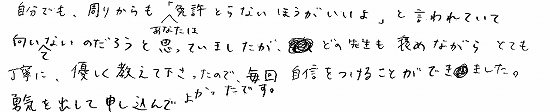 自分でも、周りからも「あなたは免許とらないほうがいいよ」と言われていて
向いてないのだろうと思っていましたが、どの先生も褒めながらとても
丁寧に、優しく教えて下さったので、毎回自信をつけることができました。
勇気を出して申し込んでよかったです。